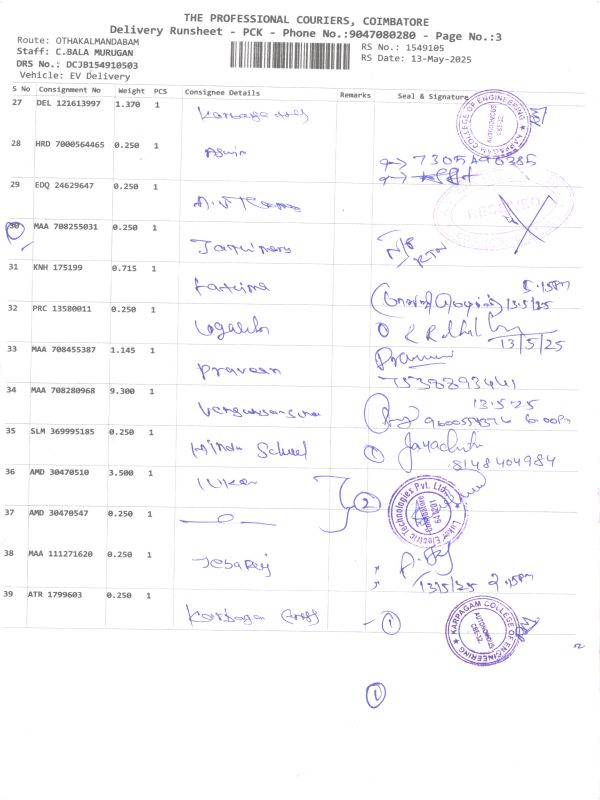 THE PROFESSIONAL COURIERS, COIMBATORE
Delivery Runsheet - PCK - Phone No.:9047080280 - Page No.:3
Route: OTHAKALMANDABAM
RS No.: 1549105
Staff: C.BALA MURUGAN
RS Date: 13-May-2025
DRS No.: DCJB154910503
Vehicle: EV Delivery
S No Consignment No Weight PCS Consignee Details Remarks Seal & Signature
27 DEL 121613997 1.370 1
KARPAGAM COLLEGE OF ENGINEERING
AUTONOMOUS
28 HRD 7000564465 0.250 1 Aswin
7305490385
29 EDQ 24629647 0.250 1
RECEIVED
30 MAA 708255031 0.250 1
31 KNH 175199 0.715 1 Fathima
5.15pm
13/5/25
32 PRC 13580011 0.250 1
13/5/25
33 MAA 708455387 1.145 1 Praveen
7538893441
34 MAA 708280968 9.300 1
13.5.25
6.00pm
35 SLM 369995185 0.250 1 Hindu School
8148404984
36 AMD 30470510 3.500 1 Luker
2
Luker Electric Technologies Pvt. Ltd.
37 AMD 30470547 0.250 1
38 MAA 111271620 0.250 1 Jebaraj
13/5/25
39 ATR 1799603 0.250 1 Karpagam
1
KARPAGAM COLLEGE OF ENGINEERING
AUTONOMOUS
1